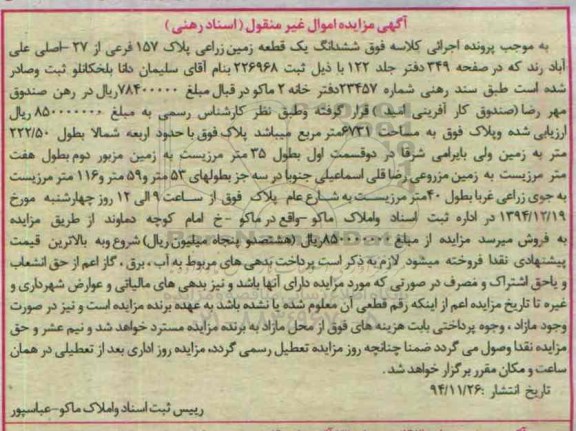 آگهی مزایده اموال غیر منقول (اسناد رهنی)
به موجب پرونده اجرائی کلاسه فوق ششدانگ یک قطعه زمین زراعی پلاک ۱۵۷ فرعی از ۲۷-اصلی علی
آباد رند که در صفحه ۳۴۹ دفتر جلد ۱۲۲ با ذیل ثبت ۲۲۶۹۶۸ بنام آقای سلیمان دانا بلخکانلو ثبت وصادر
شده است طبق سند رهنی شماره ۲۳۴۵۷دفتر خانه ۲ ماکو در قبال مبلغ ۷۸۴۰۰۰۰۰ریال در رهن صندوق
مهر رضا(صندوق کار آفرینی امید) قرار گرفته وطبق نظر کارشناس رسمی به مبلغ ۸۵۰۰۰۰۰۰۰ ریال
ارزیابی شده وپلاک فوق به مساحت ۶۷۳۱متر مربع میباشد پلاک فوق با حدود اربعه شمالا بطول ۲۲۲/۵۰
متر به زمین ولی بایرامی شرقا در دوقسمت اول بطول ۳۵ متر مرزیست به زمین مزبور دوم بطول هفت
متر مرزیست به زمین مزروعی رضا قلی اسماعیلی جنوبا در سه جز بطولهای ۵۳ متر و۵۹ متر و۱۱۶ متر مرزیست
به جوی زراعی غربا بطول ۴۰متر مرزیست به شارع عام پلاک فوق از ساعت ۹ الی ۱۲ روز چهارشنبه مورخ
۱۳۹۴/۱۲/۱۹ در اداره ثبت اسناد واملاک ماکو -واقع در ماکو -خ امام کوچه دماوند از طریق مزایده
به فروش میرسد مزایده از مبلغ ۸۵۰۰۰۰۰۰۰ریال (هشتصدو پنجاه میلیون ریال) شروع وبه بالاترین قیمت
پیشنهادی نقدا فروخته میشود لازم به ذکر است پرداخت بدهی های مربوط به آب ، برق ، گاز اعم از حق انشعاب
و یاحق اشتراک و مصرف در صورتی که مورد مزایده دارای آنها باشد و نیز بدهی های مالیاتی و عوارض شهرداری و
غیره تا تاریخ مزایده اعم از اینکه رقم قطعی آن معلوم شده یا نشده باشد به عهده برنده مزایده است و نیز در صورت
وجود مازاد ، وجوه پرداختی بابت هزینه های فوق از محل مازاد به برنده مزایده مسترد خواهد شد و نیم عشر و حق
مزایده نقدا وصول می گردد ضمنا چنانچه روز مزایده تعطیل رسمی گردد، مزایده روز اداری بعد از تعطیلی در همان
ساعت و مکان مقرر برگزار خواهد شد .
تاریخ انتشار :۹۴/۱۱/۲۶
رییس ثبت اسناد واملاک ماکو-عباسپور